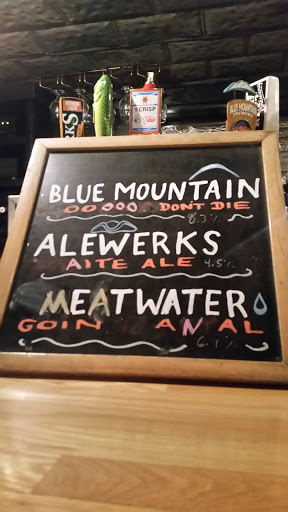 CRISP
BLUE MOUNTAIN
BLUE MOUNTAIN
OOOOO DONT DIE
8.3%
ALEWERKS
AITE ALE 4.5%
MEATWATER
GOIN ANAL
6.1%